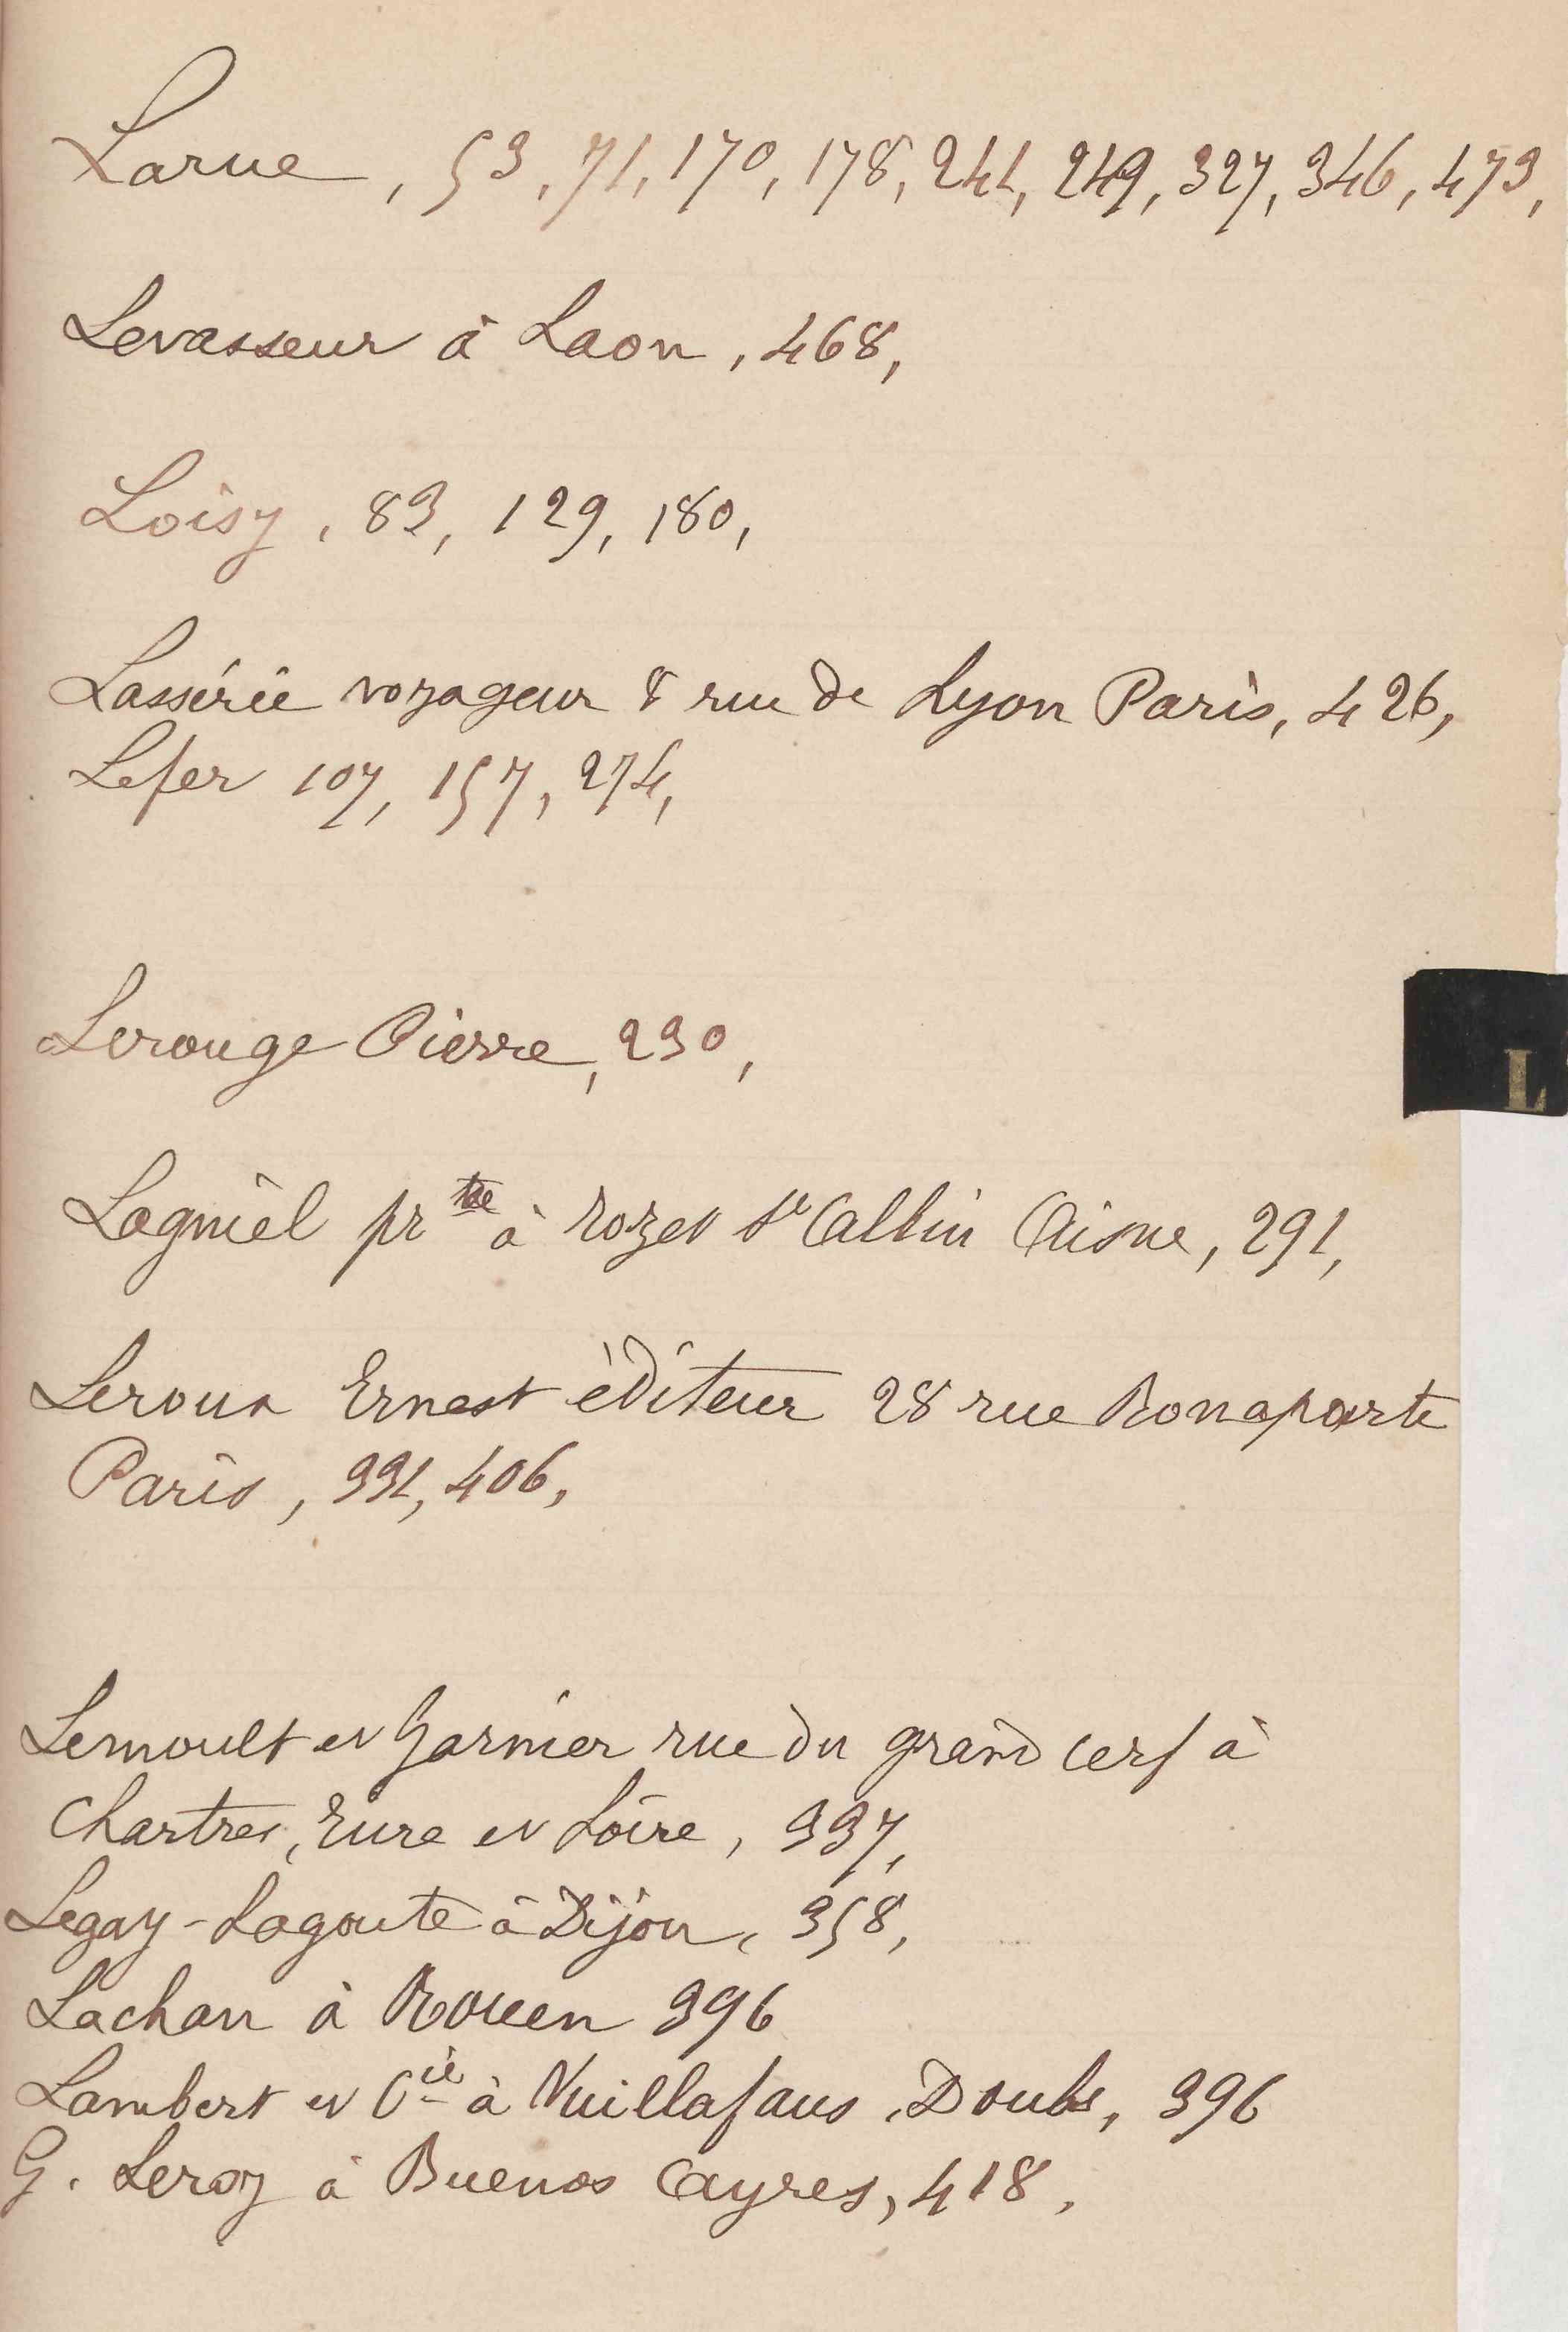 Larue, 53, 71, 170, 178, 241, 249, 327, 346, 473,
Levasseur à Laon, 468,
Loisy, 83, 129, 180,
Lassérie voyageur 8 rue de Lyon Paris, 426,
Lefer 107, 157, 274,
Lerouge Pierre, 230,
L
Lagniel pr à Rozet St Albin Aisne, 291,
Leroux Ernest éditeur 28 rue Bonaparte
Paris, 331, 406,
Lemoult et Garnier rue du grand cerf à
Chartres, Eure et Loire, 337,
Legay-Lagoute à Dijon, 358,
Lachan à Rouen 396
Lambert et Cie à Vuillafans, Doubs, 396
G. Leroy à Buenos Ayres, 418,